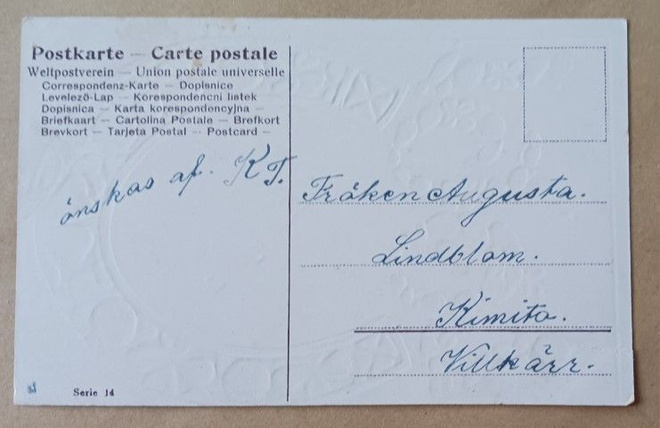 Postkarte — Carte postale
Weltpostverein — Union postale universelle
Correspondenz-Karte — Dopisnice
Levelező-Lap — Korespondencni listek
Dopisnica — Karta korespondencyjna —
Briefkaart — Cartolina Postale — Brefkort
Brevkort — Tarjeta Postal — Postcard —
önskas af. K T.
Fröken Augusta.
Lindblom.
Kimito.
Villkärr.
Serie 14